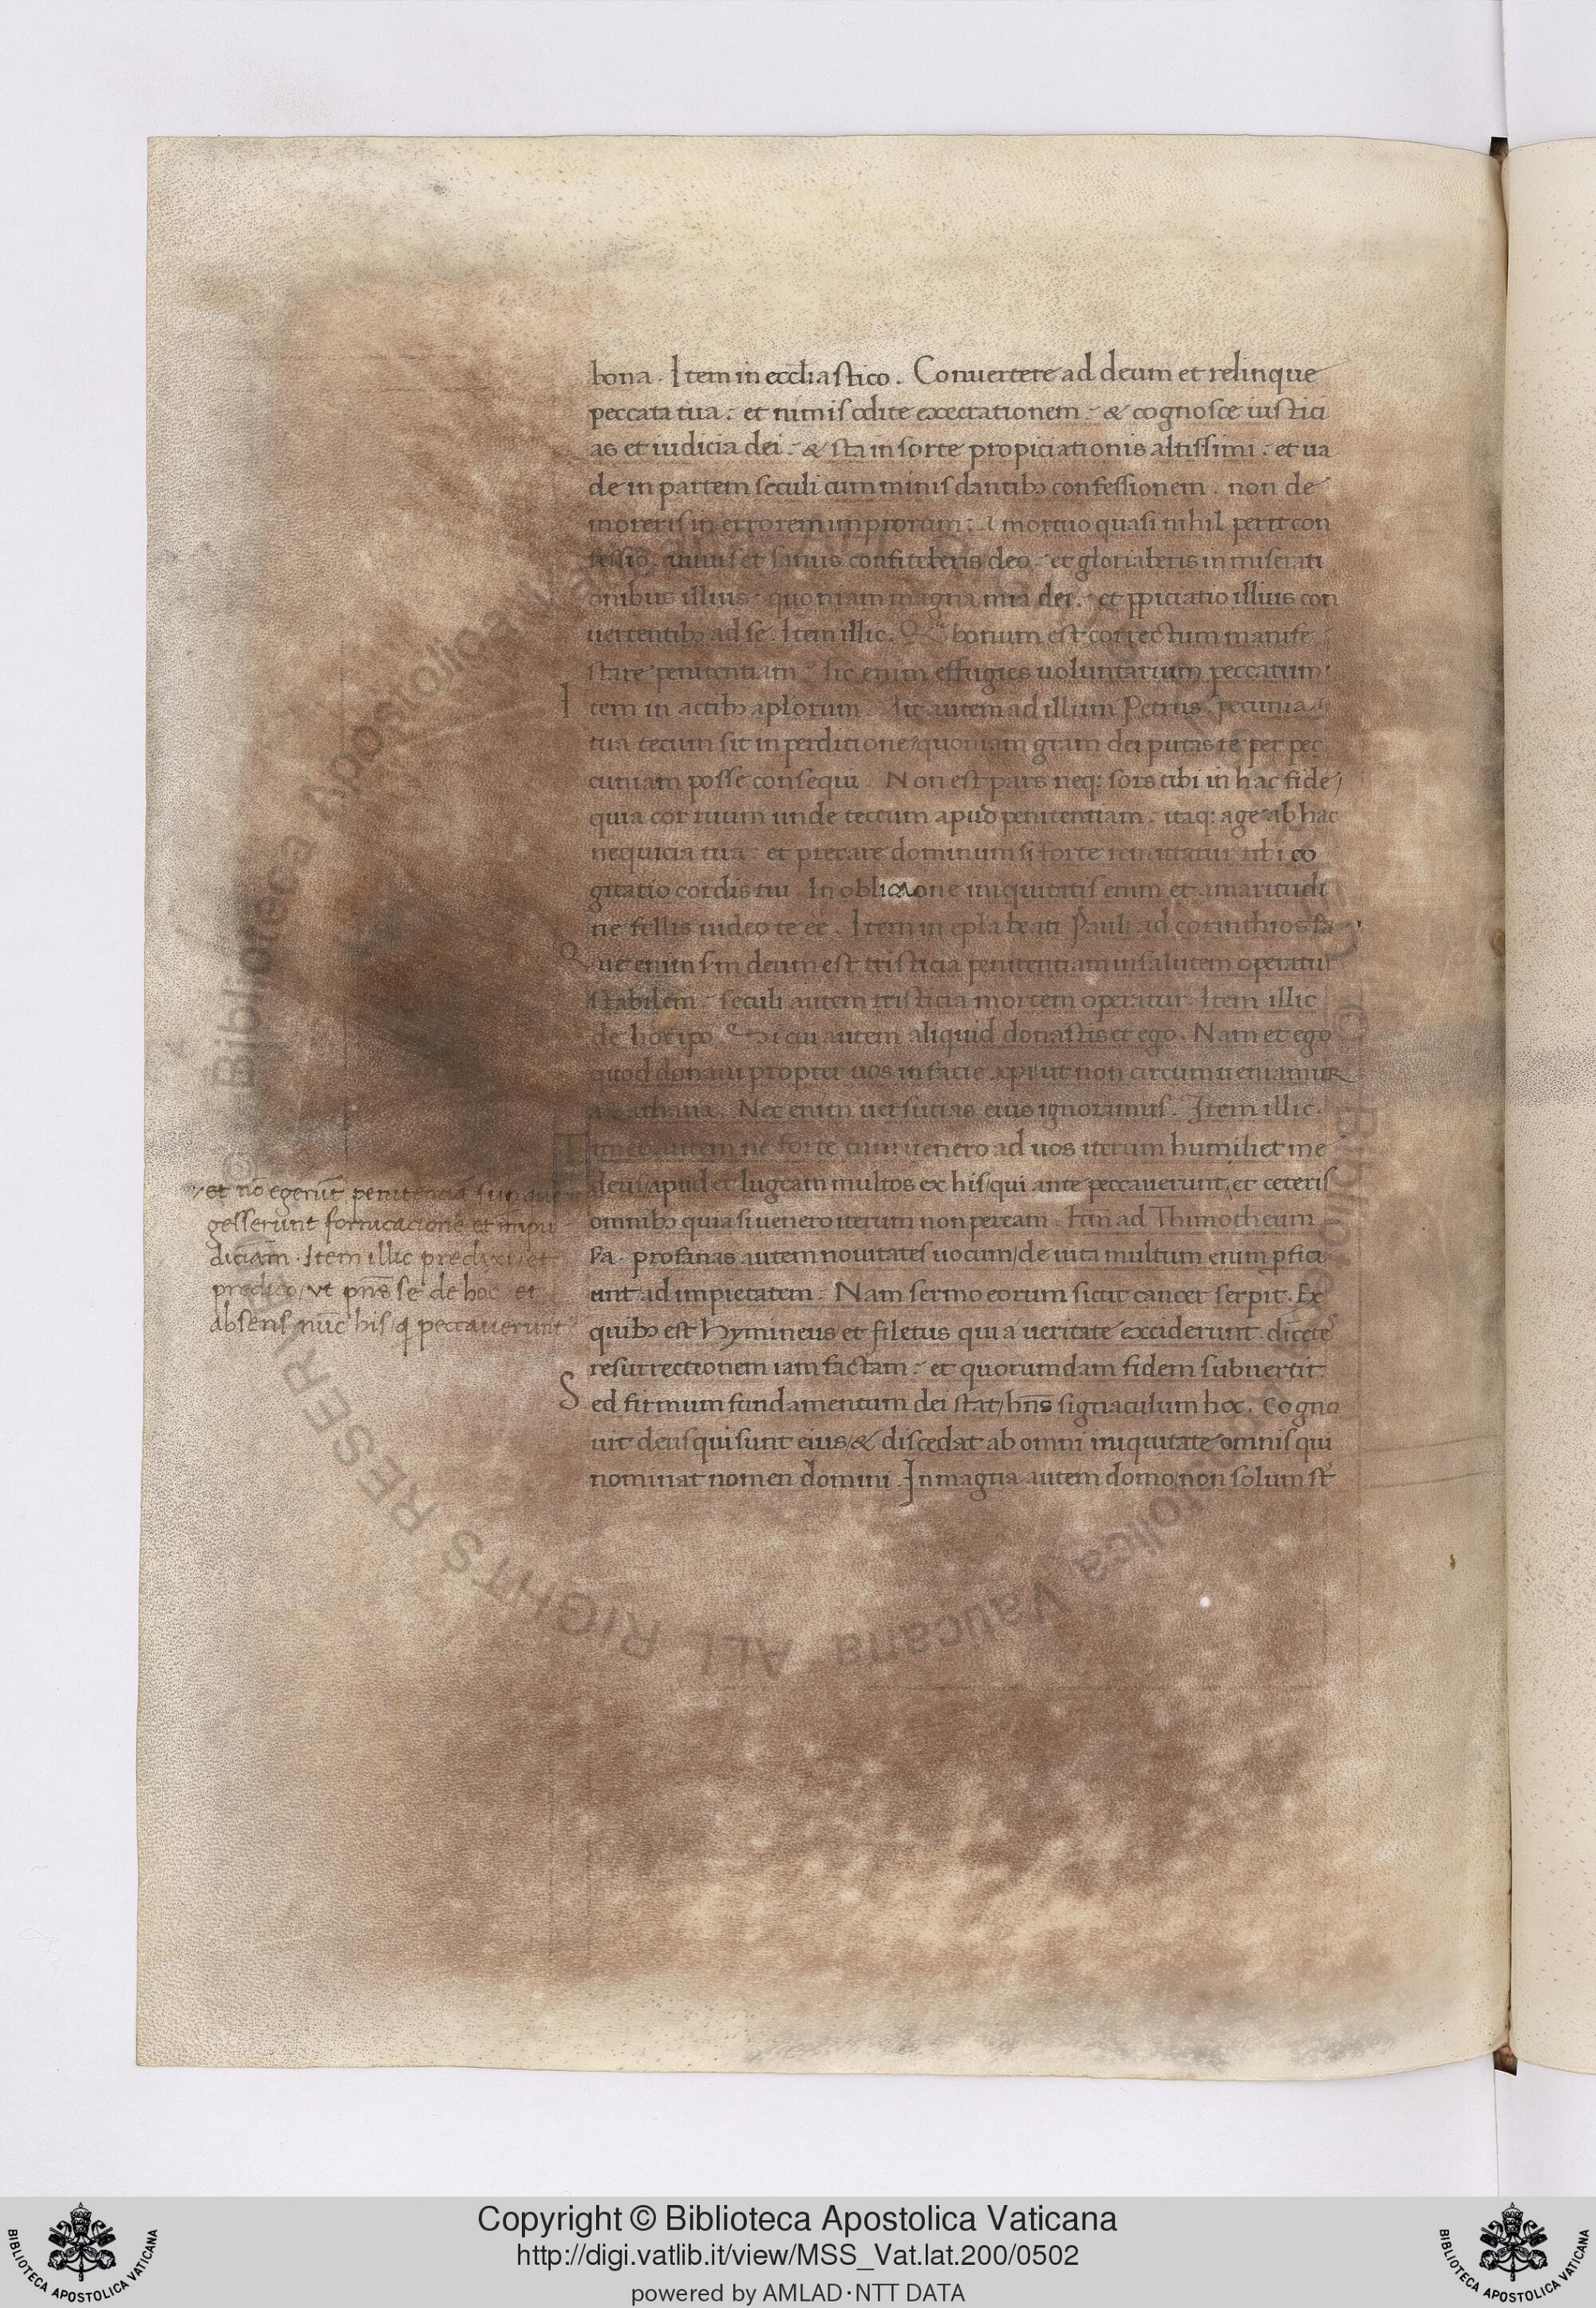 bona. Item in eccłiastico. Conuertere ad deum et relinque
peccata tua: et nimis odite execrationem: & cognosce iustici
as et iudicia dei: & sta in sorte propiciationis altissimi: et ua
de in partem seculi cum minis dantibꝫ confessionem. non de
moreris in errorem impiorum: A mortuo quasi nihil perit con
fessio. uiuus et sanus confiteberis deo: et gloriaberis in miserati
onibus illius: quoniam magna mia dei: et ꝓpiciatio illius con
uertentibꝫ ad se. Item illic. bonum est correctum manife
stare penitentiam: sic enim effugies uoluntarium peccatum.
Item in actibꝫ apłorum. Ait autem ad illum Petrus. pecunia
tua tecum sit in perditione/ quoniam gram dei putas te per pec
cuniam posse consequi. Non est pars neq: sors tibi in hac fide/
quia cor tuum unde tectum apud penitentiam. itaq: age ab hac
nequicia tua: et precare dominum si forte remittatur tibi co
gitatio cordis tui. In obligatione iniquitatis enim et amaritudi
ne fellis uideo te eē. Item in epła beati Pauli ad corinthios
Que enim sm deum est tristicia penitentiam in salutem operatur
stabilem: seculi autem tristicia mortem operatur. Item illic
de hoc ipo. Si cui autem aliquid donastis et ego. Nam et ego
quod donaui propter uos in facie xpi ut non circumueniamur
a sathana. Nec enim uersutias eius ignoramus. Item illic.
Timeo autem ne forte cum uenero ad uos iterum humiliet me
deus/ apud et lugeam multos ex his/ qui ante peccauerunt, et ceteris
omnibꝫ quia si uenero iterum non peream. Itm ad Thimotheum
Pa. profanas autem nouitates uocum/ de uita multum enim ꝓfici
unt/ ad impietatem. Nam sermo eorum sicut cancer serpit. Ex
quibꝫ est hymineus et filetus qui a ueritate exciderunt. dicetes
resurrectionem iam factam: et quorumdam fidem subuertit.
Sed firmum fundamentum dei stat/ hn̄s signaculum hoc. Cogno
uit deus qui sunt eius/ & discedat ab omni iniquitate omnis qui
nominat nomen domini. In magna autem domo/ non solum st̄
et nō egerūt penitenciā sup que
gesserunt fornicacionē et inpu
diciam. Item illic predixi/ et
predico/ vt pn̄s se de hoc et
absens nūc his/ q peccauerunt
Copyright © Biblioteca Apostolica Vaticana
http://digi.vatlib.it/view/MSS_Vat.lat.200/0502
powered by AMLAD·NTT DATA
BIBLIOTECA APOSTOLICA VATICANA
BIBLIOTECA APOSTOLICA VATICANA